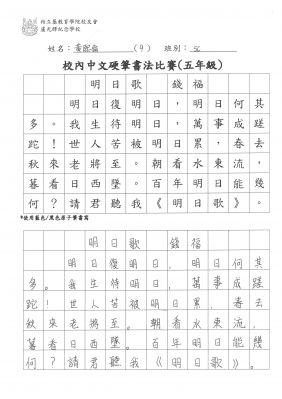 柏立基教育學院校友會
盧光輝紀念學校
姓名：黃 （9） 班別：5C
校內中文硬筆書法比賽(五年級)
明日歌 錢福
明日復明日，明日何其
多。我生待明日，萬事成蹉
跎！世人苦被明日累，春去
秋來老將至。朝看水東流，
暮看日西墜。百年明日能幾
何？請君聽我《明日歌》。
*使用藍色/黑色原子筆書寫
明日歌 錢福
明日復明日，明日何其
多。我生待明日，萬事成蹉
跎！世人苦被明日累，春去
秋來老將至。朝看水東流，
暮看日西墜。百年明日能幾
何？請君聽我《明日歌》。